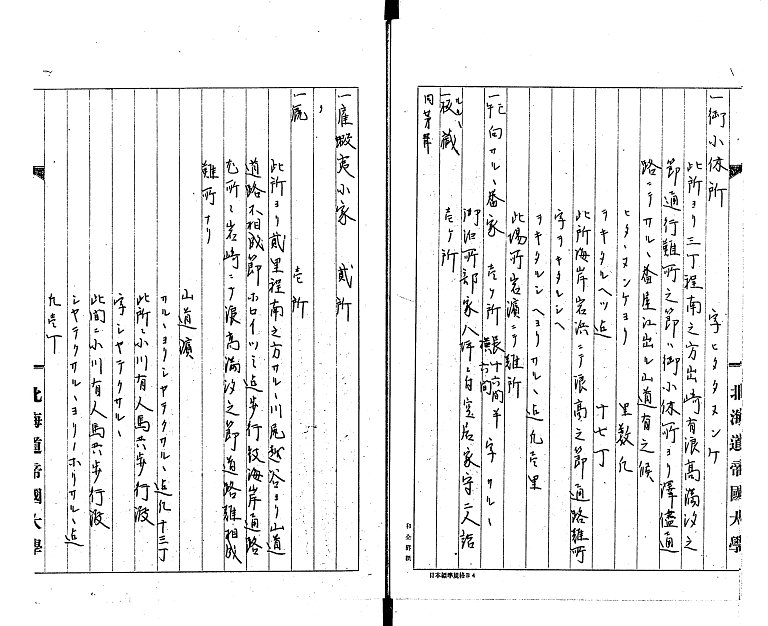 一御小休所　字ヒタタヌンケ
此所ヨリ三丁程南之方出崎有浪高満汐之
節通行難所之節ハ御小休所ヨリ澤儘通
路ニテサルヽ番屋江出ル山道有之候
ヒタヽヌンケヨリ　里数凡
ヲキタルヘツ迄　十七丁
此所海岸岩浜ニテ浪高之節通路難所
字ヲキタルシヘ
ヲキタルシヘヨリサルヽ迄凡壱里
此場所岩濱ニテ難所
向サルヽ番家　壱ケ所　長十六間半　横六間　字サルヽ
御泊所部家八坪ニ白空居家守二人詰
一板蔵　壱ケ所
同茅
北海道帝國大學
日本標準規格B4
一雇蝦夷小家　貳所
一厩　壱所
此所ヨリ貳里程南之方サルヽ川尻越谷ヨリ山道
道路不相成節ホロイツミ迄歩行役海岸通路
所ニ岩崎ニテ浪高満汐之節道路難相成
難所ナリ
山道濱
サルヽヨリシヤテクサルヽ迄凡十三丁
此所ニ小川有人馬共歩行渡
字シヤテクサルヽ
此間ニ小川有人馬共歩行渡
シヤテクサルヽヨリノホリサルヽ迄
九壱丁
北海道帝國大學